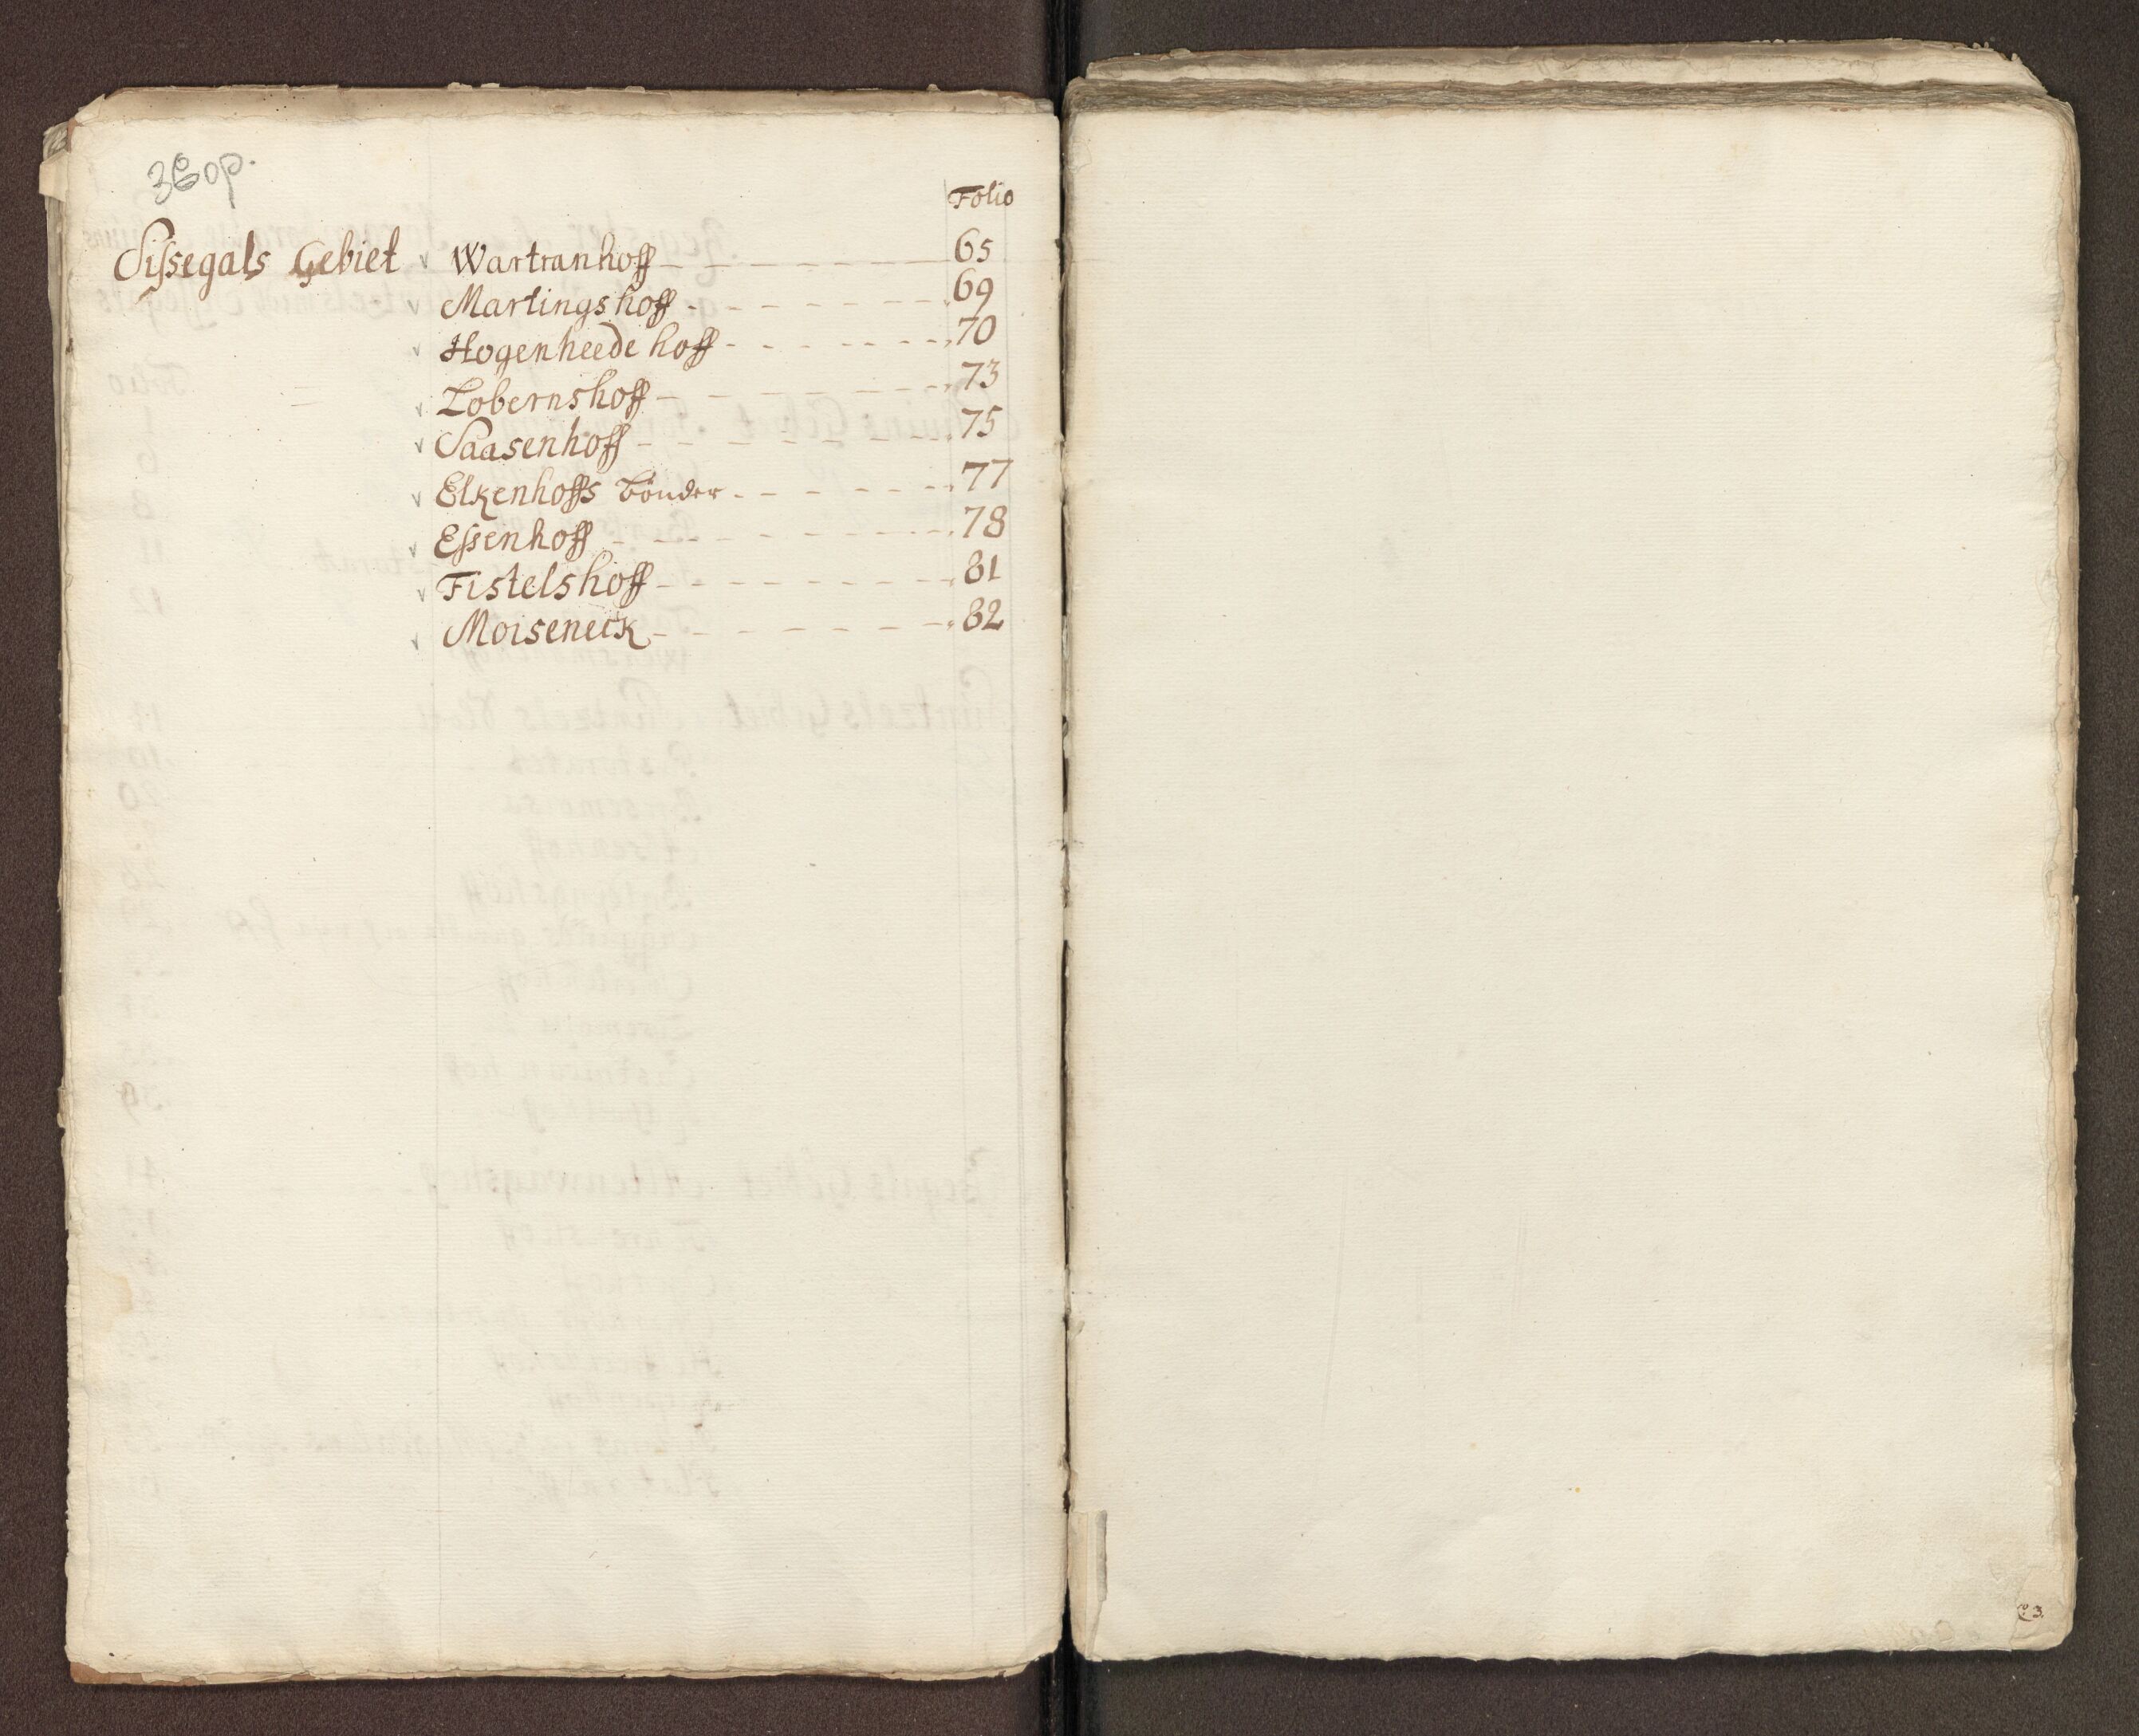 Folio
Sissegals Gebiet Wartranhoff 65
Martingshoff 69
Hogenheede hoff 70
Lobernshoff 73
Saasenhoff 75
Elkenhoffs bönder 77
Essenhoff 78
Fistelshoff 81
Moiseneck 82